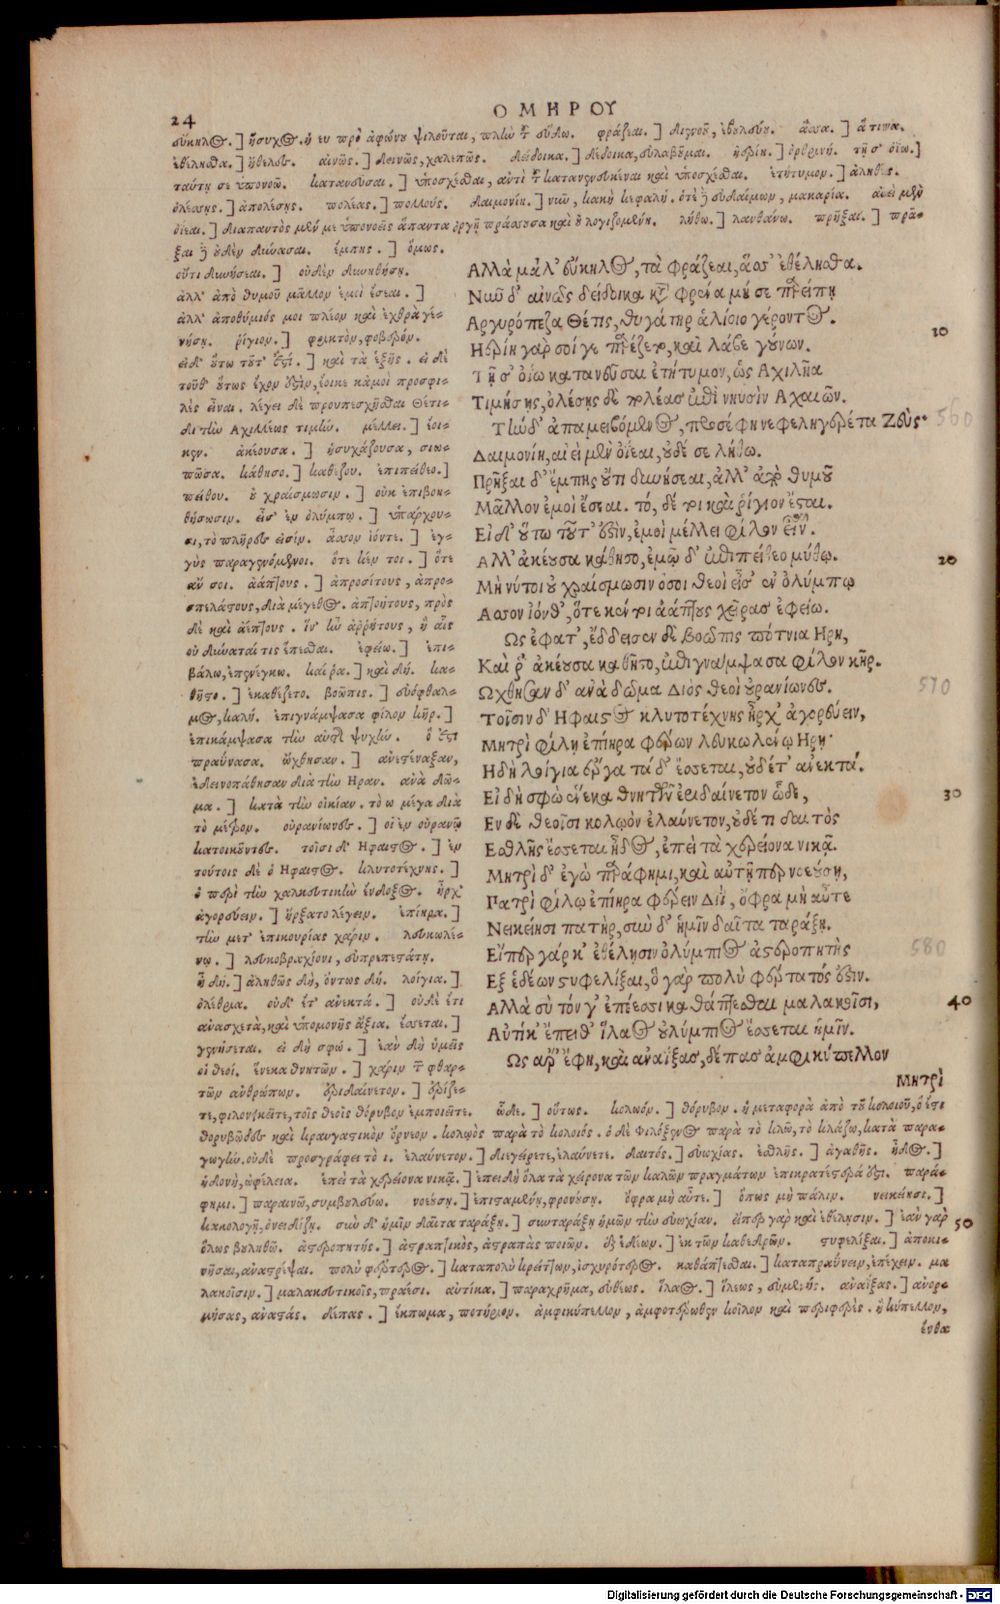 24
ΟΜΗΡΟΥ
εὔκηλος.] ἥσυχος. ἡ ευ πρὸ ἀφώνου ψιλοῦται, πλὴν τοῦ εὔδω. φράζεαι.] διανοῇ, βουλεύῃ. ἅσσα.] ἅ τινα.
ἐθέλησθα.] ἤθελες. αἰνῶς.] δεινῶς, χαλεπῶς. δείδοικα.] δέδοικα, εὐλαβοῦμαι. ἠερίη.] ὀρθρινή. τῇ σ' ὀΐω.]
ταύτῃ σε ὑπονοῶ. κατανεῦσαι.] ὑποσχέσθαι, ἀντὶ τοῦ κατανενευκέναι καὶ ὑποσχέσθαι. ἐτήτυμον.] ἀληθές.
ὀλέσῃς.] ἀπολέσῃς. πολέας.] πολλούς. δαιμονίη.] νῦν, κακὴ κεφαλή. ὁτὲ δὲ εὐδαίμων, μακαρία. αἰεὶ μὲν
ὀΐεαι.] διαπαντὸς μέν με ὑπονοεῖς ἅπαντα ὀργῇ πράσσουσα καὶ οὐ λογιζομένη. λήθω.] λανθάνω. πρῆξαι.] πρᾶ-
ξαι δὲ οὐδὲν δυνάσαι. ἔμπης.] ὅμως.
οὔτι δυνήσεαι.] οὐδὲν δυνηθήσῃ.
ἀλλ' ἀπὸ θυμοῦ μᾶλλον ἐμοὶ ἔσεαι.]
ἀλλ' ἀποθύμιός μοι πλέον καὶ ἐχθρὰ γε-
νήσῃ. ῥίγιον.] φρικτὸν, φοβερόν.
εἰ δ' οὕτω τοῦτ' ἐστί.] καὶ τὰ ἑξῆς. εἰ δὲ
τοῦθ' οὕτως ἔχον ἐστὶν, ἔοικε κἀμοὶ προσφι-
λὲς εἶναι. λέγει δὲ προυπεσχῆσθαι Θέτι-
δι τὴν Ἀχιλλέως τιμήν. μέλλει.] ἐοι-
κεν. ἀκέουσα.] ἡσυχάζουσα, σιω-
πῶσα. κάθησο.] καθέζου. ἐπιπείθεο.]
πείθου. οὐ χραίσμωσιν.] οὐκ ἐπιβοη-
θήσωσιν. εἰσ' ἐν ὀλύμπῳ.] ὑπάρχου-
σι, τὸ πλῆρες εἰσίν. ἆσσον ἰόντε.] ἐγ-
γὺς παραγενόμενοι. ὅτε κέν τοι.] ὅτε
ἄν σοι. ἀάπτους.] ἀπροσίτους, ἀπρο-
σπελάστους, διὰ μέγεθος. ἀπτοήτους, πρὸς
δὲ καὶ ἀέπτους. ἵν' ᾖ ἀρρήτους, ἢ αἷς
οὐ δύναταί τις ἕπεσθαι. ἐφείω.] ἐπι-
βάλω, ἐπενέγκω. καί ῥα.] καὶ δή. κα-
θῆστο.] ἐκαθέζετο. βοῶπις.] εὐόφθαλ-
μος, καλή. ἐπιγνάμψασα φίλον κῆρ.]
ἐπικάμψασα τὴν αὐτῆς ψυχήν. ὅ ἐστι
πραΰνασα. ὤχθησαν.] ἀνεστέναξαν,
ἐδεινοπάθησαν διὰ τὴν Ηραν. ἀνὰ δῶ-
μα.] κατὰ τὴν οἰκίαν. τὸ ω μέγα διὰ
τὸ μέτρον. οὐρανίωνες.] οἱ ἐν οὐρανῷ
κατοικοῦντες. τοῖσι δ' Ηφαιστος.] ἐν
τούτοις δὲ ὁ Ηφαιστος. κλυτοτέχνης.]
ὁ περὶ τὴν χαλκευτικὴν ἔνδοξος. ἦρχ'
ἀγορεύειν.] ἤρξατο λέγειν. ἐπίηρα.]
τὴν μετ' ἐπικουρίας χάριν. λευκωλέ-
νῳ.] λευκοβραχίονι, εὐπρεπεστάτῃ.
ἦ δή.] ἀληθῶς δὴ, ὄντως δή. λοίγια.]
ὀλέθρια. οὐδ' ἔτ' ἀνεκτά.] οὐδὲ ἔτι
ἀνασχετὰ, καὶ ὑπομονῆς ἄξια. ἔσσεται.]
γενήσεται. εἰ δὴ σφώ.] ἐὰν δὴ ὑμεῖς
οἱ θεοί. ἕνεκα θνητῶν.] χάριν τῶν φθαρ-
τῶν ἀνθρώπων. ἐριδαίνετον.] ἐρίζε-
τε, φιλονικεῖτε, τοῖς θεοῖς θόρυβον ἐμποιεῖτε. ὧδε.] οὕτως. κολωόν.] θόρυβον. ἡ μεταφορὰ ἀπὸ τοῦ κολοιοῦ, ὅ ἐστι
θορυβῶδες καὶ κραυγαστικὸν ὄρνεον. κολῳὸς παρὰ τὸ κολοιός. ὁ δὲ Φιλόξενος παρὰ τὸ κλῶ, τὸ κλάζω, κατὰ παρα-
γωγὴν. οὐδὲ προσγράφει τὸ ι. ἐλαύνετον.] διεγείρετε, ἐλαύνετε. δαιτός.] εὐωχίας. ἐσθλῆς.] ἀγαθῆς. ἦδος.]
ἡδονὴ, ὠφέλεια. ἐπεὶ τὰ χερείονα νικᾷ.] ἐπειδὴ ὅλα τὰ χείρονα τῶν καλῶν πραγμάτων ἐπικρατέστερά ἐστι. παρά-
φημι.] παραινῶ, συμβουλεύω. νοεύσῃ.] ἐπισταμένῃ, φρονούσῃ. ὄφρα μὴ αὖτε.] ὅπως μὴ πάλιν. νεικείησι.]
κακολογῇ, ὀνειδίζῃ. σὺν δ' ἡμῖν δαῖτα ταράξῃ.] συνταράξῃ ἡμῶν τὴν εὐωχίαν. εἴπερ γὰρ καὶ ἐθέλησιν.] ἐὰν γὰρ
ὅλως βουληθῇ. ἀστεροπητής.] ἀστραπτικὸς, ἀστραπὰς ποιῶν. ἐξ ἑδέων.] ἐκ τῶν καθεδρῶν. στυφελίξαι.] ἀποκι-
νῆσαι, ἀναστρέψαι. πολὺ φέρτερος.] καταπολὺ κρείττων, ἰσχυρότερος. καθάπτεσθαι.] καταπραΰνειν, ἐπέχειν. μα
λακοῖσιν.] μαλακευτικοῖς, πραέσι. αὐτίκα.] παραχρῆμα, εὐθέως. ἵλαος.] ἵλεως, εὐμενής. ἀναΐξας.] ἀνορ-
μήσας, ἀναστάς. δέπας.] ἔκπωμα, ποτήριον. ἀμφικύπελλον, ἀμφοτέρωθεν κοῖλον καὶ περιφερές. ἢ κύπελλον,
ἔνθα
Αλλὰ μάλ' εὔκηλος, τὰ φράζεαι, ἅσσ' ἐθέλησθα.
Νῦν δ' αἰνῶς δείδοικα κατὰ φρένα μή σε παρείπῃ
Αργυρόπεζα Θέτις, θυγάτηρ ἁλίοιο γέροντος.
Ηερίη γὰρ σοί γε παρέζετο, καὶ λάβε γούνων.
Τῇ σ' ὀΐω κατανεῦσαι ἐτήτυμον, ὡς Αχιλῆα
Τιμήσῃς, ὀλέσῃς δὲ πολέας ἐπὶ νηυσὶν Αχαιῶν.
Τὴν δ' ἀπαμειβόμενος, προσέφη νεφεληγερέτα Ζεύς·
Δαιμονίη, αἰεὶ μὲν ὀΐεαι, οὐδέ σε λήθω.
Πρῆξαι δ' ἔμπης οὔτι δυνήσεαι, ἀλλ' ἀπὸ θυμοῦ
Μᾶλλον ἐμοὶ ἔσεαι. τό, δέ τοι καὶ ῥίγιον ἔσται.
Εἰ δ' οὕτω τοῦτ' ἐστὶν, ἐμοὶ μέλλει φίλον εἶναι.
Αλλ' ἀκέουσα κάθησο, ἐμῷ δ' ἐπιπείθεο μύθῳ.
Μὴ νύ τοι οὐ χραίσμωσιν ὅσοι θεοὶ εἰσ' ἐν ὀλύμπῳ
Ασσον ἰόνθ', ὅτε κέν τοι ἀάπτους χεῖρας ἐφείω.
Ως ἔφατ', ἔδδεισεν δὲ βοῶπις πότνια Ηρη,
Καὶ ῥ' ἀκέουσα καθῆστο, ἐπιγνάμψασα φίλον κῆρ.
Ωχθησαν δ' ἀνὰ δῶμα Διὸς θεοὶ οὐρανίωνες.
Τοῖσιν δ' Ηφαιστος κλυτοτέχνης ἦρχ' ἀγορεύειν,
Μητρὶ φίλῃ ἐπίηρα φέρων λευκωλένῳ Ηρῃ·
Ηδὴ λοίγια ἔργα τάδ' ἔσσεται, οὐδέτ' ἀνεκτά.
Εἰ δὴ σφὼ ἕνεκα θνητῶν ἐριδαίνετον ὧδε,
Εν δὲ θεοῖσι κολῳὸν ἐλαύνετον, οὐδέ τι δαιτὸς
Εσθλῆς ἔσσεται ἦδος, ἐπεὶ τὰ χερείονα νικᾷ.
Μητρὶ δ' ἐγὼ παράφημι, καὶ αὐτῇ περ νοεούσῃ,
Πατρὶ φίλῳ ἐπίηρα φέρειν Διῒ, ὄφρα μὴ αὖτε
Νεικείησι πατὴρ, σὺν δ' ἡμῖν δαῖτα ταράξῃ.
Εἴπερ γάρ κ' ἐθέλησιν ὀλύμπιος ἀστεροπητὴς
Εξ ἑδέων στυφελίξαι, ὃ γὰρ πολὺ φέρτατός ἐστιν.
Αλλὰ σὺ τόν γ' ἐπέεσσι καθάπτεσθαι μαλακοῖσι,
Αὐτίκ' ἔπειθ' ἵλαος ὀλύμπιος ἔσσεται ἡμῖν.
Ως ἄρ' ἔφη, καὶ ἀναΐξας, δέπας ἀμφικύπελλον
Μητρὶ
10
20
30
40
50
560
570
580
Digitalisierung gefördert durch die Deutsche Forschungsgemeinschaft - DFG